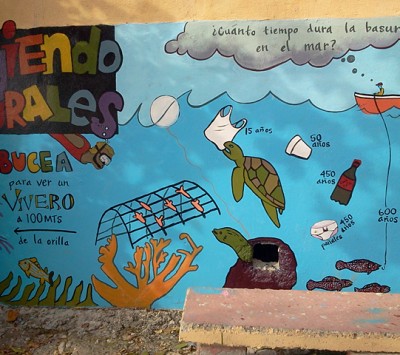 iendo
rales
¿Cuánto tiempo dura la basura
en el mar?
BUCEA
para ver un
VIVERO
A 100 MTS
de la orilla
15 años
50
años
450
años
450
años
pañales
600
años